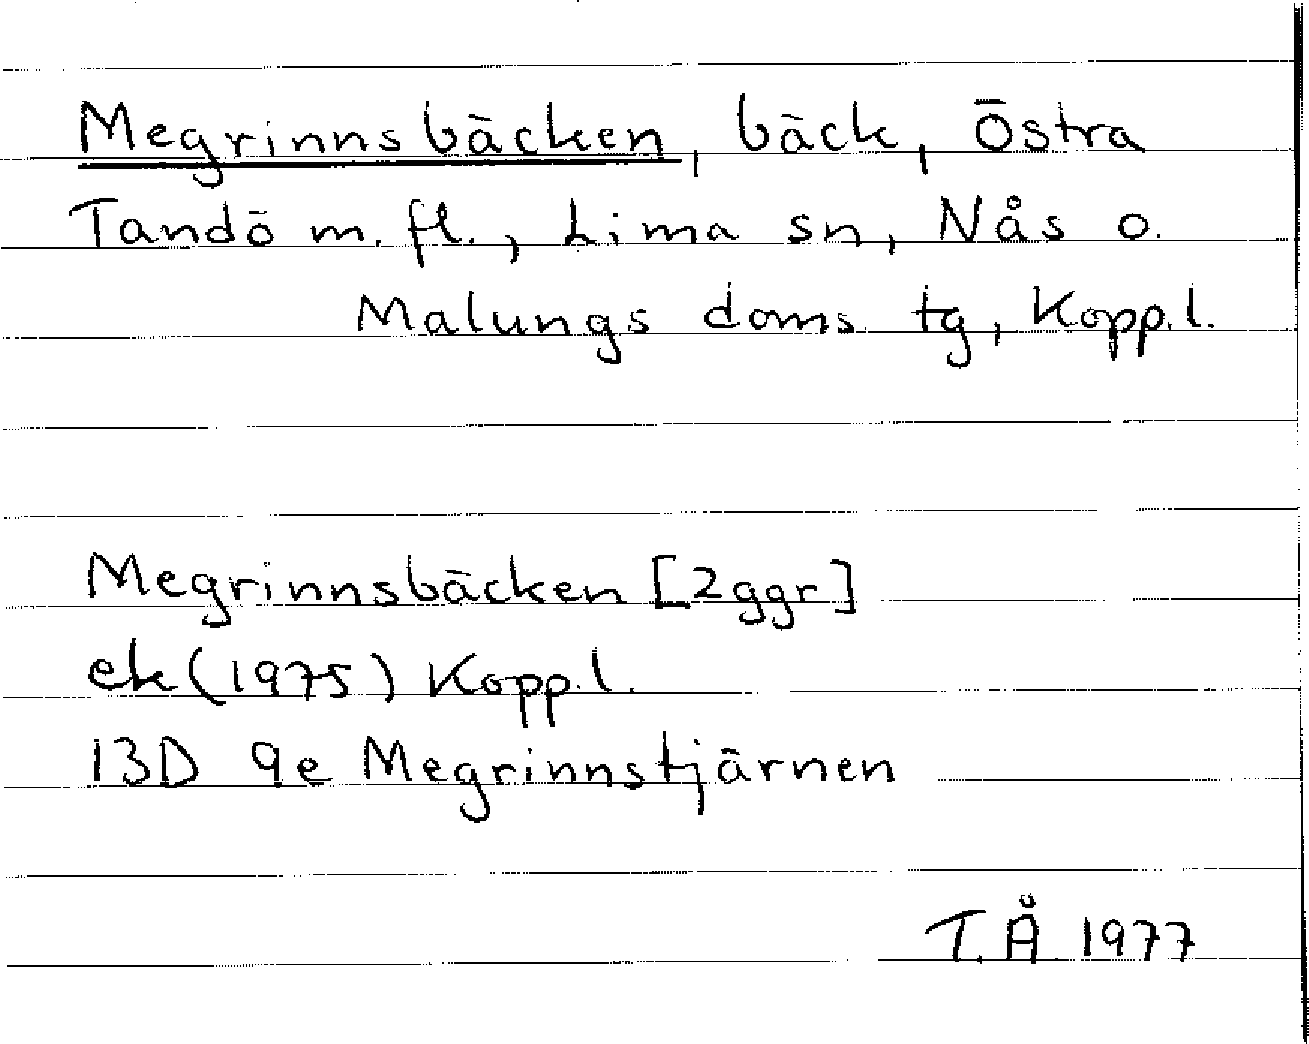 Megrinnsbäcken, bäck, Östra
Tandö m. fl., Lima sn, Nås o.
Malungs doms. tg, Kopp. l.
Megrinnsbäcken [2ggr]
ek (1975) Kopp. l.
13D 9e Megrinnstjärnen
T. Å 1977